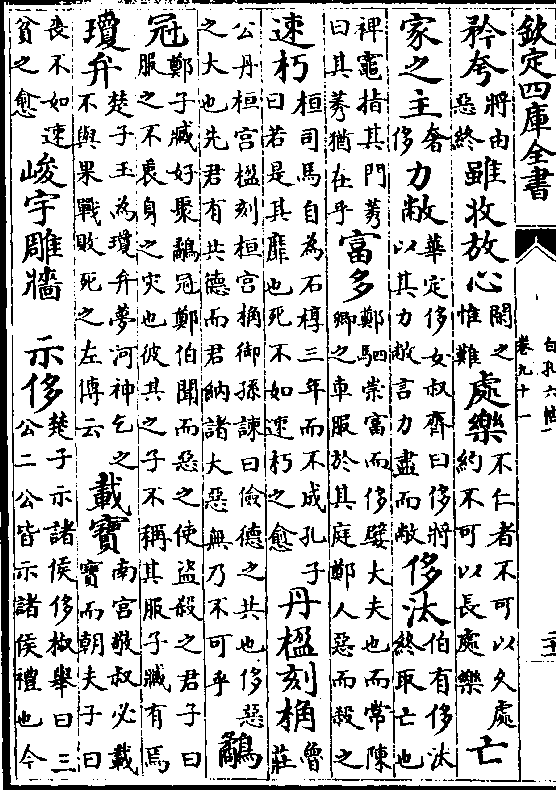 欽定四庫全書
白孔六帖
卷九十一
二十
矜夸將由惡終雖收放心閑之惟難處樂不仁者不可以久處約不可以長處樂亡
家之主奢侈力敝華定侈女叔齊曰侈將以其力敝言力盡而敝侈汰伯有侈汰終取亡也
裨竈指其門莠曰其莠猶在乎富多鄭駟崇富而侈嬖大夫也而常陳卿之車服於其庭鄭人惡而殺之
速朽桓司馬自為石椁三年而不成孔子曰若是其靡也死不如速朽之愈丹楹刻桷魯莊
公丹桓宮楹刻桓宮桷御孫諫曰儉德之共也侈惡之大也先君有共德而君納諸大惡無乃不可乎鷸
冠鄭子臧好聚鷸冠鄭伯聞而惡之使盜殺之君子曰服之不衷身之災也彼其之子不稱其服子臧有焉
瓊弁楚子玉為瓊弁夢河神乞之不與果戰敗死之左傳云載寶南宮敬叔必載寶而朝夫子曰
喪不如速貧之愈峻宇雕牆示侈楚子示諸侯侈椒舉曰三公二公皆示諸侯禮也今